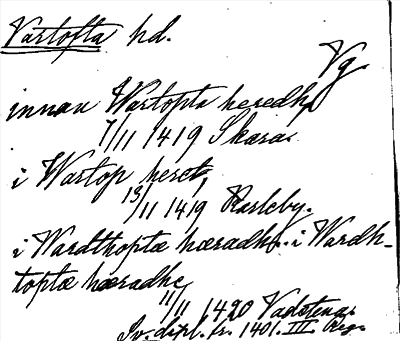 Vartofta hd.
Vg.
innan Wartopta heredhe
7/11 1419 Skara.
i Wartop heret,
13/11 1419 Karleby.
i Wardthoptæ hæradhe. i Wardh-
toptæ hæradhe,
11/11 1420 Vadstena.
Sv. dipl. fr. 1401. III. Reg.